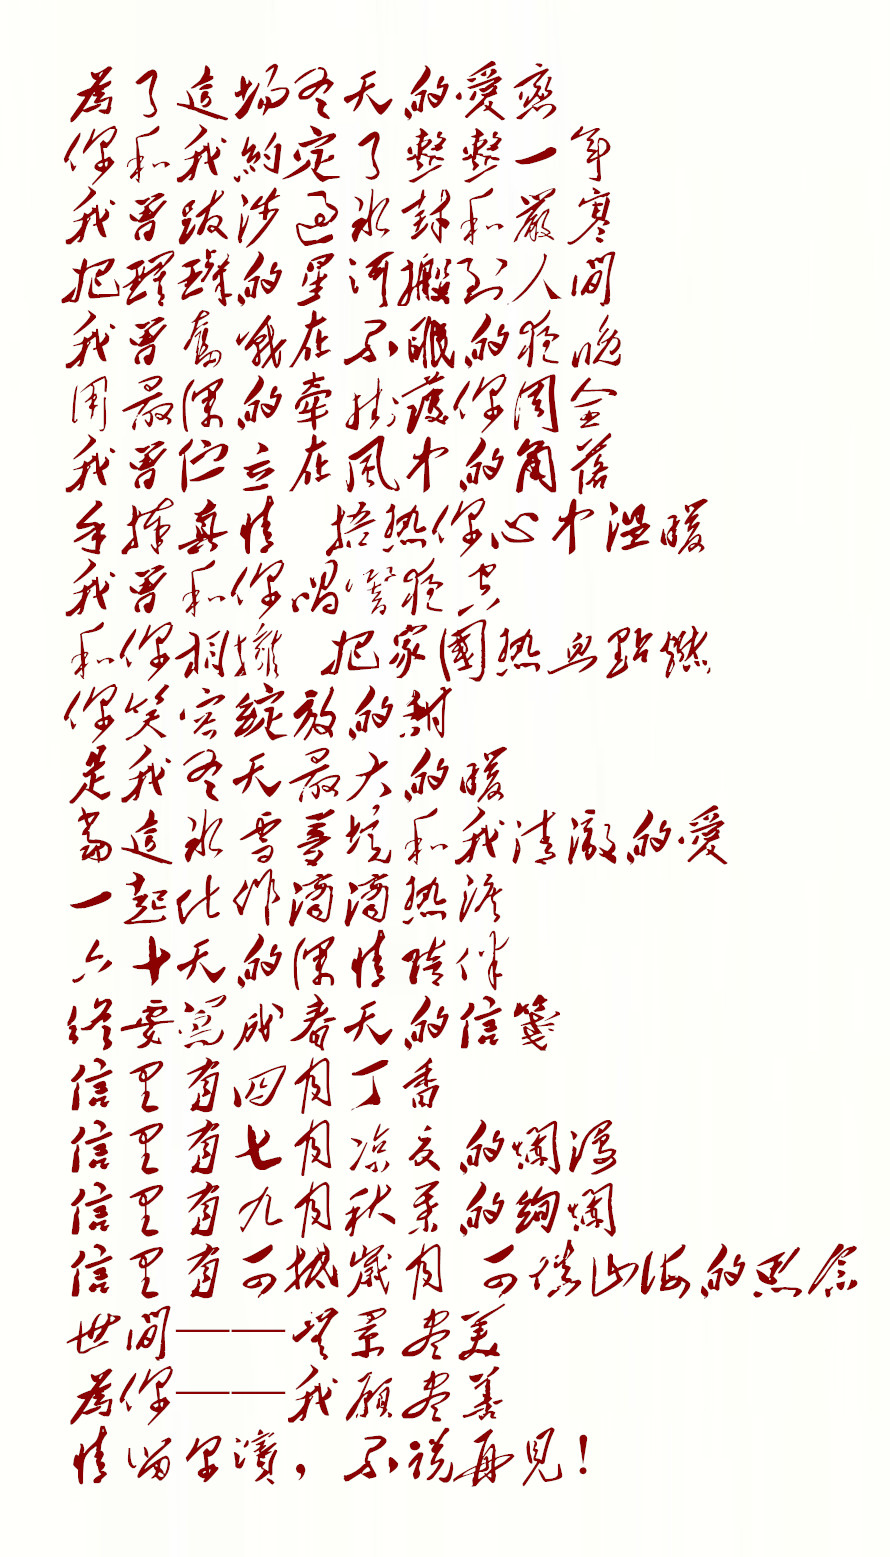 為了這场冬天的愛戀
你和我約定了整整一年
我曾跋涉過冰封和嚴寒
把璀璨的星河搬到人間
我曾奮戰在不眠的夜晚
用最深的牽掛護你周全
我曾伫立在風中的角落
手捧真情 捂热你心中温暖
我曾和你唱響夜空
和你相擁 把家國热血點燃
你笑容綻放的甜
是我冬天最大的暖
當這冰雪夢境和我清澈的愛
一起化作滴滴热淚
六十天的深情陪伴
終要寫成春天的信箋
信里有四月丁香
信里有七月凉夜的爛漫
信里有九月秋葉的絢爛
信里有可抵歲月 可讀山海的思念
世間——望景盡美
為你——我願盡善
情留冰濱，不說再見！